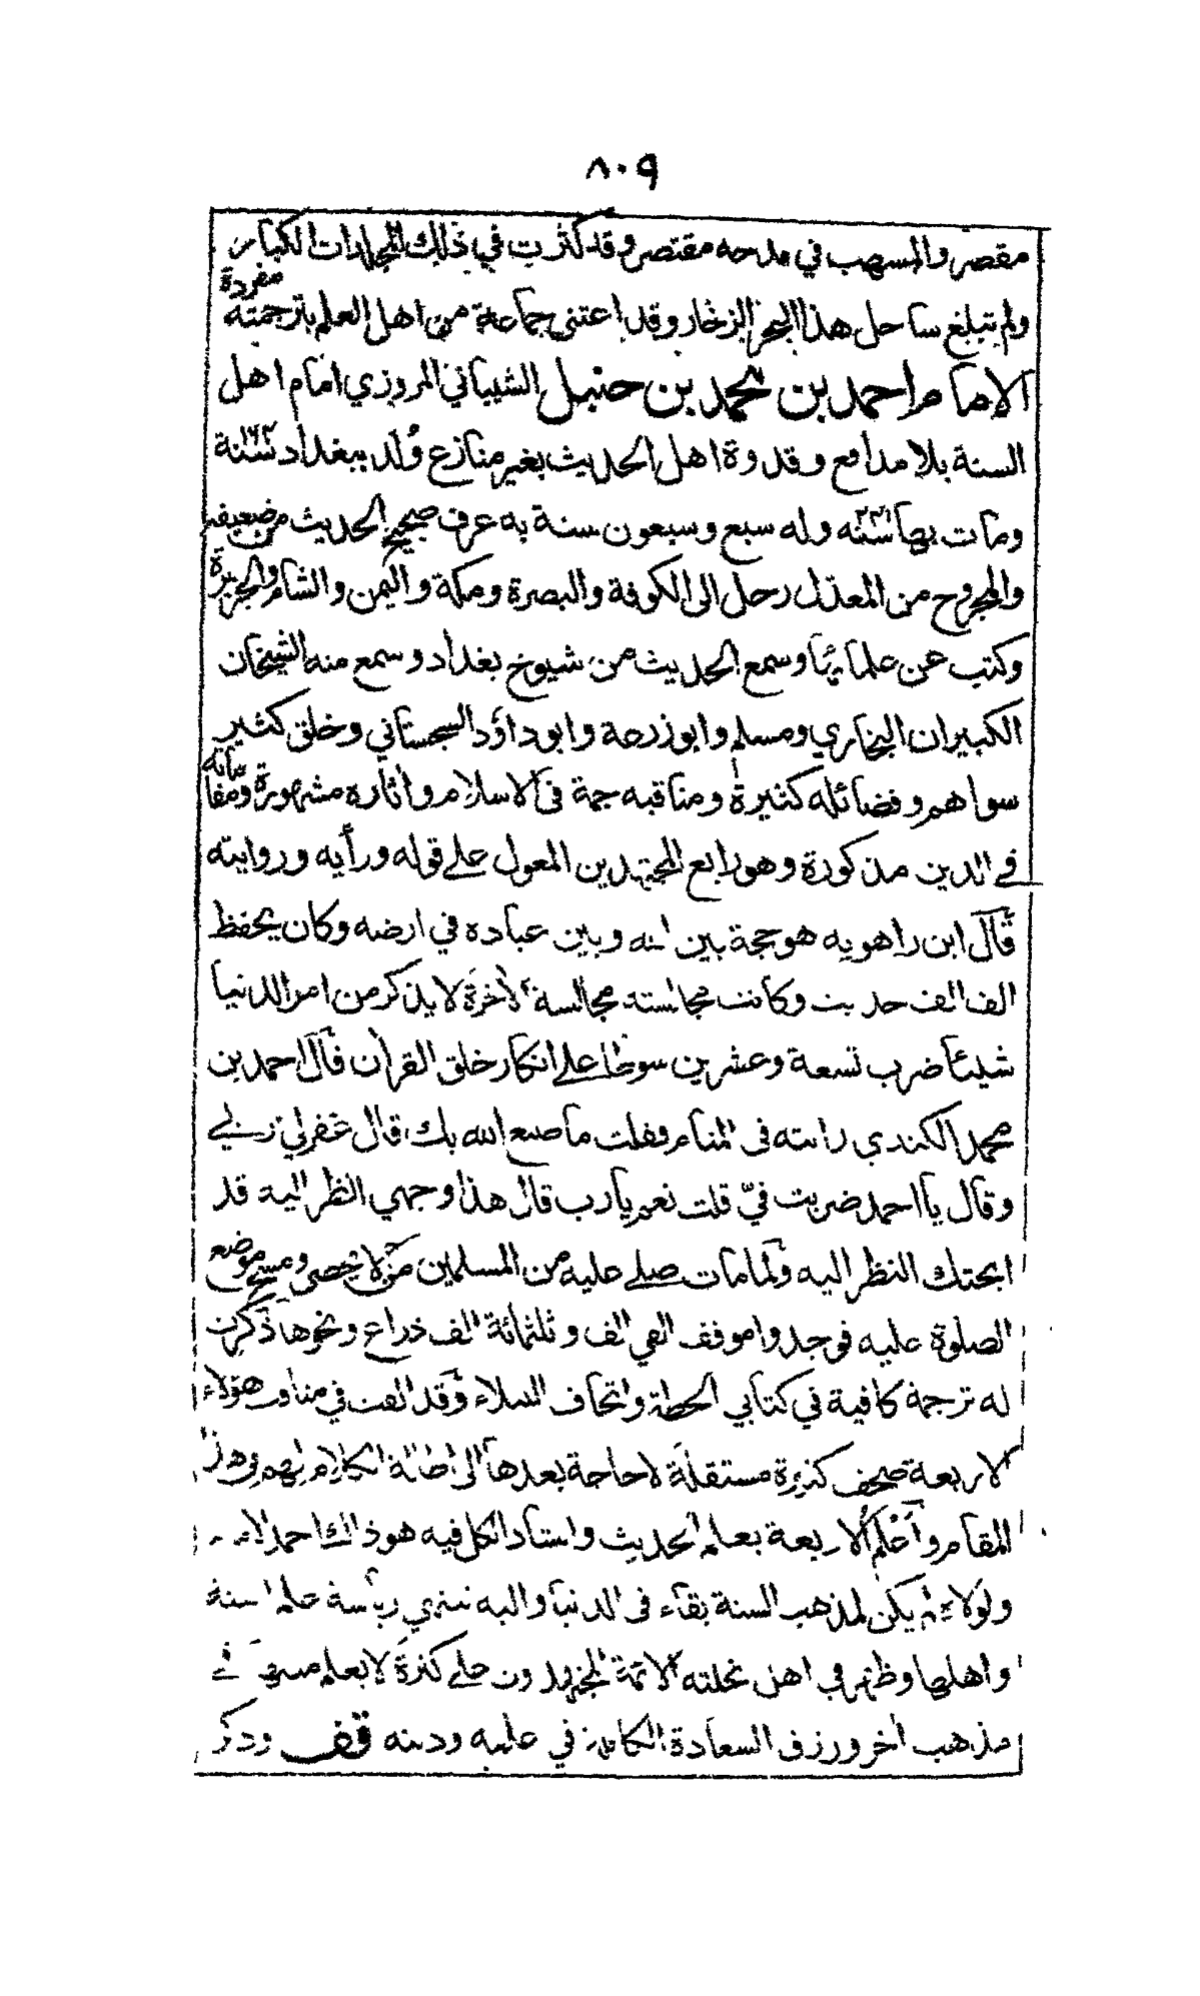 ٨٠٩
مقصر والمسهب في مدحه مقتصر وقد كثرت في ذلك المجلدات الكبار
ولم تبلغ ساحل هذا البحر الزخار وقد اعتنى جماعة من اهل العلم بترجمته مفردة
الامام احمد بن محمد بن حنبل الشيباني المروزي امام اهل
السنة بلا مدافع وقدوة اهل الحديث بغير منازع وُلد ببغداد سنة ١٦٤
ومات بها سنة ٢٤١ وله سبع وسبعون سنة به عرف صحيح الحديث من ضعيفه
والمجروح من المعدّل رحل الى الكوفة والبصرة ومكة واليمن والشام والجزيرة
وكتب عن علمائها وسمع الحديث من شيوخ بغداد وسمع منه الشيخان
الكبيران البخاري ومسلم وابو زرعة وابو داؤد السجستاني وخلق كثير
سواهم وفضائله كثيرة ومناقبه جمة فى الاسلام وأثاره مشهورة ومقاماته
في الدين مذكورة وهو رابع المجتهدين المعول على قوله ورأيه وروايته
قال ابن راهويه هو حجة بين الله وبين عباده في ارضه وكان يحفظ
الف الف حديث وكانت مجالسته مجالسة الأخرة لا يذكر من امر الدنيا
شيئا ضرب تسعة وعشرين سوطا على انكار خلق القرأن قال احمد بن
محمد الكندي رايته فى المنام فقلت ما صنع الله بك قال غفر لي ربي
وقال يا احمد ضربت فيّ قلت نعم يا رب قال هذا وجهي انظر اليه قد
ابحتك النظر اليه ولما مات صلى عليه من المسلمين من لا يحصى ومسح موضع
الصلوة عليه فوجدوا موقف الفي الف وثلثمائة الف ذراع ونحوها ذكرت
له ترجمة كافية في كتابي الحطة واتحاف النبلاء وقد الفت في مناقب هؤلاء
الاربعة صحف كثيرة مستقلة لا حاجة بعدها الى اطالة الكلام بهم في هذا
المقام وأعلم الاربعة بعلم الحديث واستاد الكل فيه هو ذلك احمد
ولولاه لم يكن لمذهب السنة بقاء فى الدنيا واليه تنتهي رياسة علم السنة
واهلها وظهر في اهل نحلته الائمة المجتهدون على كثرة لا يعلم مثلها في
مذهب أخر ورزق السعادة الكاملة في علمه ودينه قف وذكر